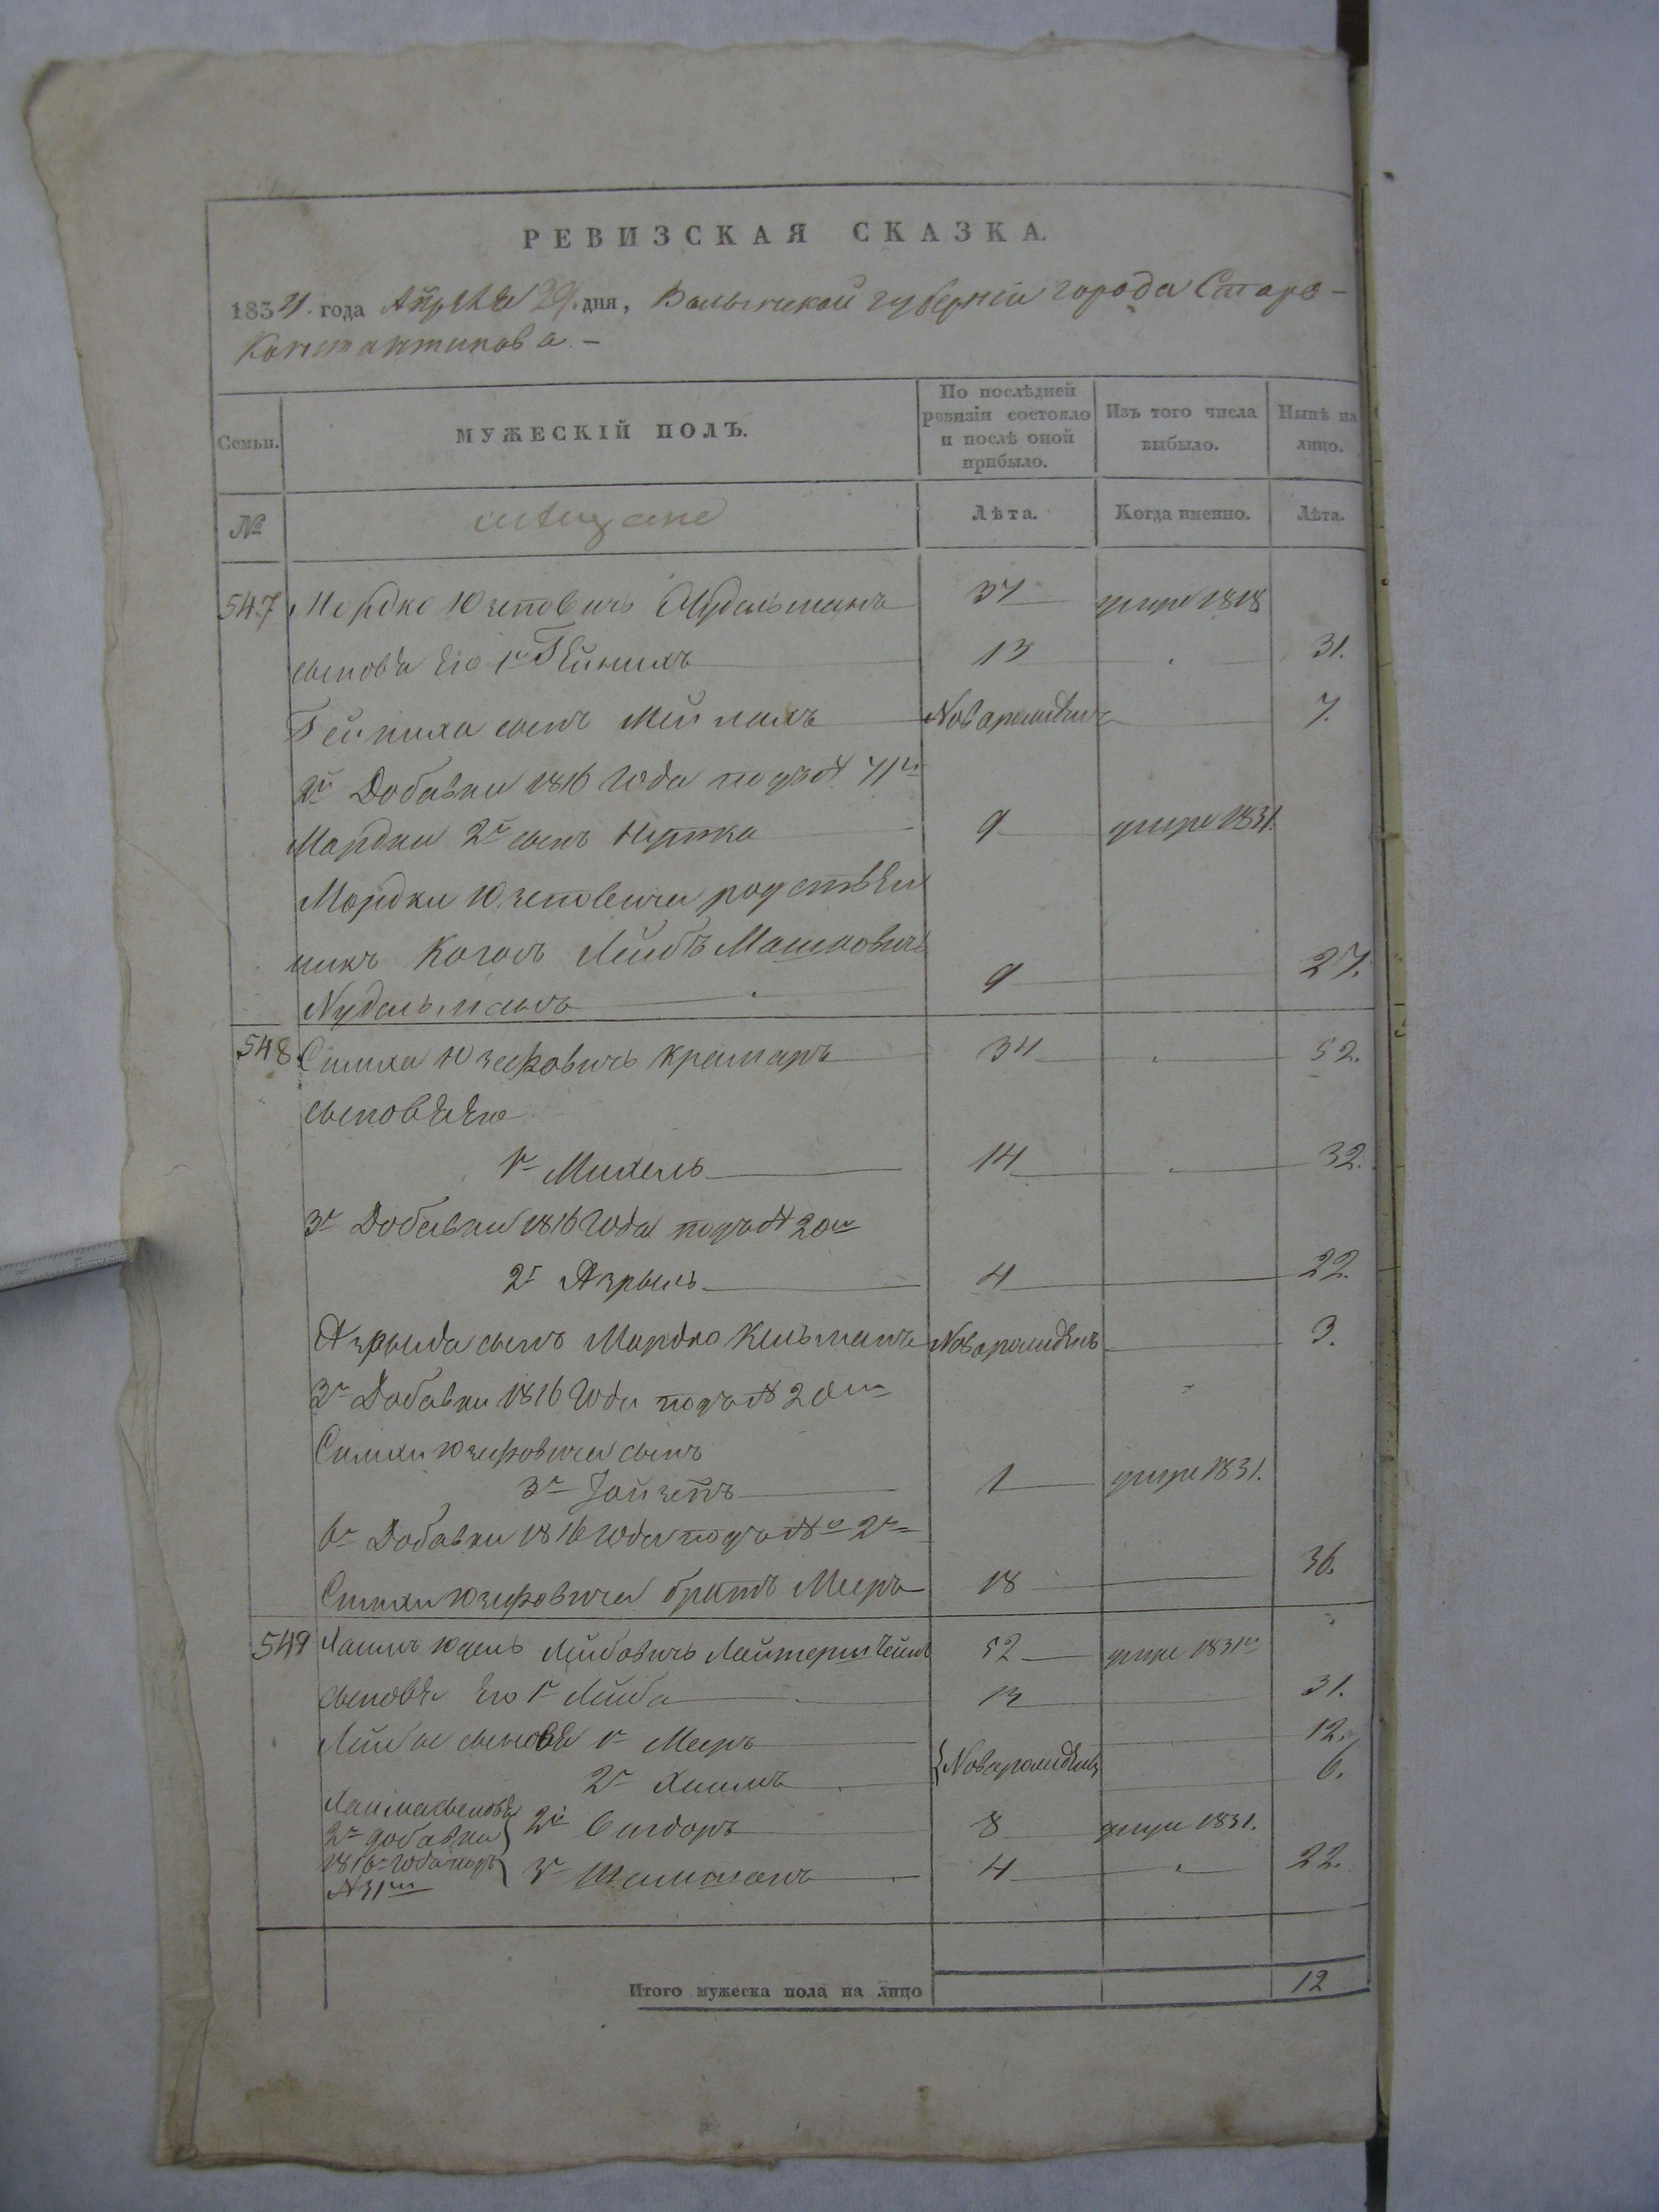 РЕВИЗСКАЯ СКАЗКА.
1834. года Апрѣля 29. дня, Волынской губерніи города Старо-
Константинова. -
Семьи. МУЖЕСКІЙ ПОЛЪ. По послѣдней ревизіи состояло и послѣ оной прибыло. Изъ того числа выбыло. Нынѣ на лицо.
№ мѣщане Лѣта. Когда именно. Лѣта.
547 Мордко Юзепович Нудельманъ 37 умре 1818
сыновья Его 1й Гейнихъ 13 31.
Гейниха сынъ Мейлахъ Новорожденъ 7.
2й Добавки 1816 Года подъ № 71м
Мордки 2й сынъ 9 умре 1831.
Мордки Юзеповича родствен
никъ Когосъ Лейбъ Машковичъ
Нудельманъ 9 27.
548 Симха Юзефовичь Крамаръ 34 52.
сыновья Его
1й Михель 14 32.
3й Добавки 1816 Года подъ № 20м
2й Азрыль 4 22.
Азрыля сынъ Мордко Кельманъ Новорожденъ 3.
3й Добавки 1816 Года подъ № 20м
Симхи Юзефовича сынъ
3й Іойзепъ 1 умре 1831.
6й Добавки 1816 Года подъ № 2м
Симхи Юзефовича братъ Мееръ 18 36.
549 Хаимъ Юдель Лейбовичь 52 умре 1831го
сыновья Его 1й Лейба 13 31.
Лейбы сыновья 1й Мееръ 12.
2й Хаимъ Новорожденъ 6.
Хаима сыновья
2й добавки 2й Сигдоръ 8 умре 1831.
1816го Года подъ 3й 4 22.
№ 31м
Итого мужеска пола на лицо 12